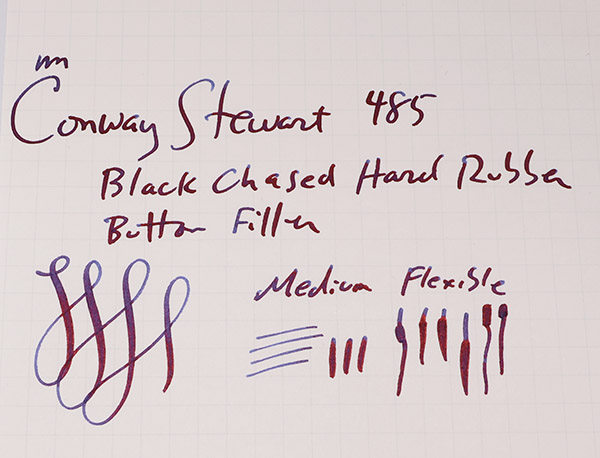 Conway Stewart 485
Black Chased Hard Rubber
Button Filler
Medium Flexible